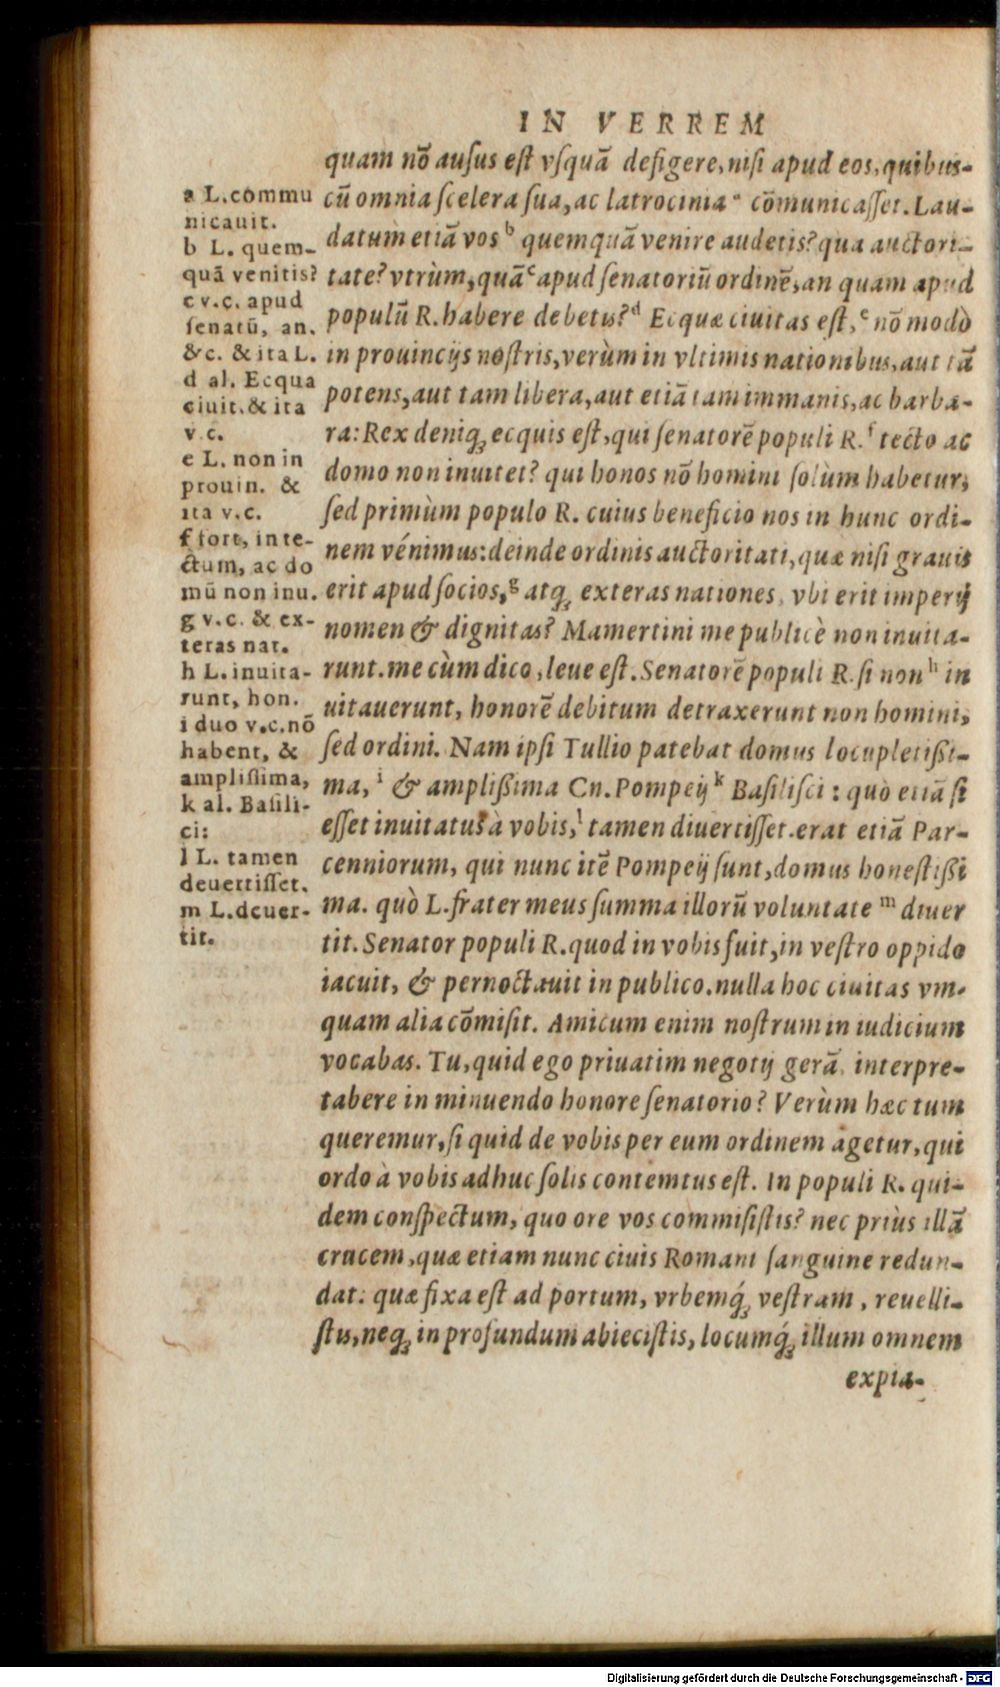 IN VERREM
quam nõ auſus eſt vſquã defigere, niſi apud eos, quibus-
cũ omnia ſcelera ſua, ac latrocinia ᵃ cõmunicaſſet. Lau-
datum etiã vos ᵇ quemquã venire audetis? qua auctori-
tate? vtrùm, quã ᶜ apud ſenatoriũ ordinẽ, an quam apud
populũ R. habere debetis? ᵈ Ecquæ ciuitas eſt, ᵉ nõ modò
in prouincijs noſtris, verùm in vltimis nationibus, aut tã
potens, aut tam libera, aut etiã tam immanis, ac barba-
ra: Rex deniq́ꝫ ecquis eſt, qui ſenatorẽ populi R. ᶠ tecto ac
domo non inuitet? qui honos nõ homini ſolùm habetur,
ſed primùm populo R. cuius beneficio nos in hunc ordi-
nem vénimus: deinde ordinis auctoritati, quæ niſi grauis
erit apud ſocios, ᵍ atqꝫ exteras nationes, vbi erit imperij
nomen & dignitas? Mamertini me publicè non inuita-
runt. me cùm dico, leue eſt. Senatorẽ populi R. ſi non ʰ in
uitauerunt, honorẽ debitum detraxerunt non homini,
ſed ordini. Nam ipſi Tullio patebat domus locupletißi-
ma, ⁱ & amplißima Cn. Pompeij ᵏ Baſiliſci: quò etiã ſi
eſſet inuitatus à vobis, ˡ tamen diuertiſſet. erat etiã Par-
cenniorum, qui nunc itẽ Pompeij ſunt, domus honeſtißi
ma. quò L. frater meus ſumma illorũ voluntate ᵐ diuer
tit. Senator populi R. quod in vobis fuit, in veſtro oppido
iacuit, & pernoctauit in publico. nulla hoc ciuitas vm-
quam alia cõmiſit. Amicum enim noſtrum in iudicium
vocabas. Tu, quid ego priuatim negotij gerã, interpre-
tabere in minuendo honore ſenatorio? Verùm hæc tum
queremur, ſi quid de vobis per eum ordinem agetur, qui
ordo à vobis adhuc ſolis contemtus eſt. In populi R. qui-
dem conſpectum, quo ore vos commiſiſtis? nec priùs illã
crucem, quæ etiam nunc ciuis Romani ſanguine redun-
dat: quæ fixa eſt ad portum, vrbemq́ꝫ veſtram, reuelli-
ſtis, neqꝫ in profundum abieciſtis, locumq́ꝫ illum omnem
expia-
a L. commu
nicauit.
b L. quem-
quã venitis?
c v.c. apud
ſenatũ, an.
&c. & ita L.
d al. Ecqua
ciuit. & ita
v.c.
e L. non in
prouin. &
ita v.c.
f fort, in te-
ctum, ac do
mũ non inu.
g v.c. & ex-
teras nat.
h L. inuita-
runt, hon.
i duo v.c. nõ
habent, &
ampliſſima,
k al. Baſili-
ci:
l L. tamen
deuertiſſet.
m L. deuer-
tit.
Digitalisierung gefördert durch die Deutsche Forschungsgemeinschaft - DFG